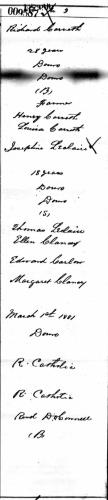 9
Richard Carruth
28 years
Down
Down
(B)
Farmer
Henry Carruth
Louisa Carruth
Josephine Leclaire
18 years
Down
Down
(S)
Thomas Leclaire
Ellen Clancy
Edward Carlow
Margaret Clancy
March 1st 1881
Down
R. Catholic
R. Catholic
Revd D. O'Connell
(B)